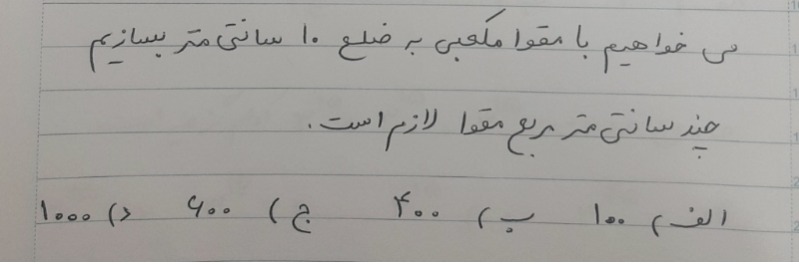 می خواهیم با مقوا مکعبی به ضلع ۱۰ سانتی متر بسازیم
چند سانتی متر مربع مقوا لازم است.
الف) ۱۰۰ ب) ۴۰۰ ج) ۶۰۰ د) ۱۰۰۰